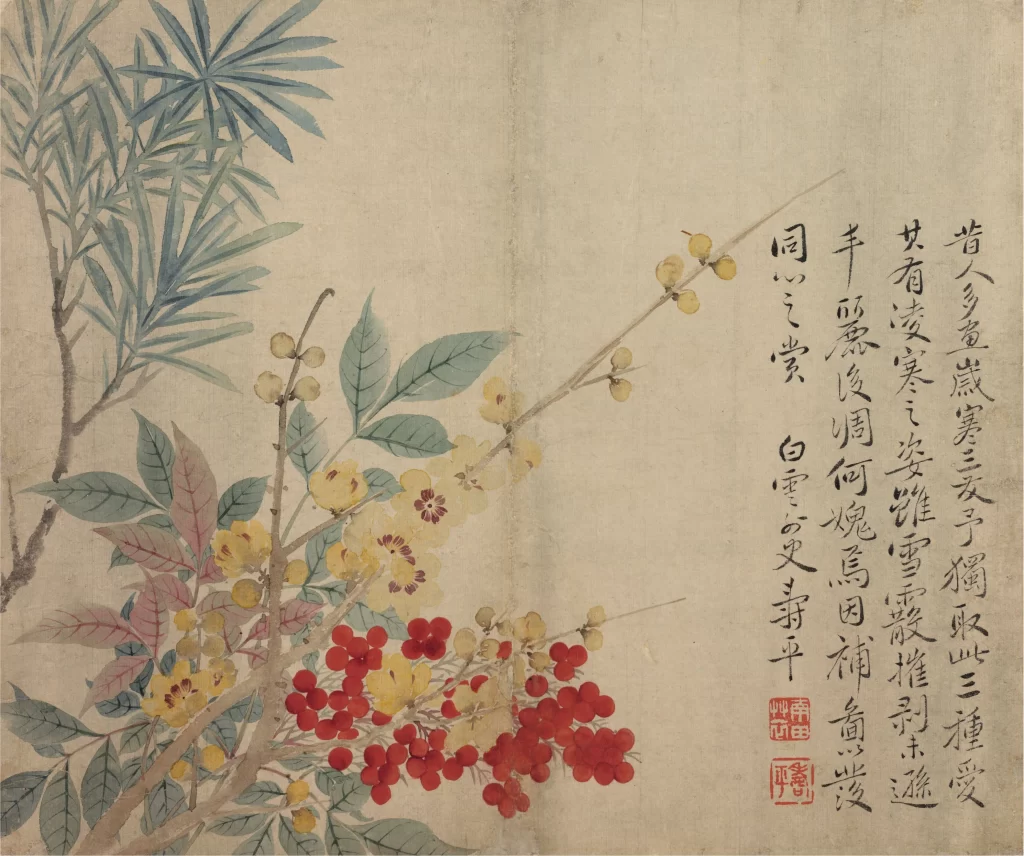 昔人多畫歲寒三友予獨取此三種愛
其有凌寒之姿雖雪霰摧剥未遜
丰麗後凋何媿焉因補圖以發
同心之賞 白雲外史壽平
南田艸衣
壽平